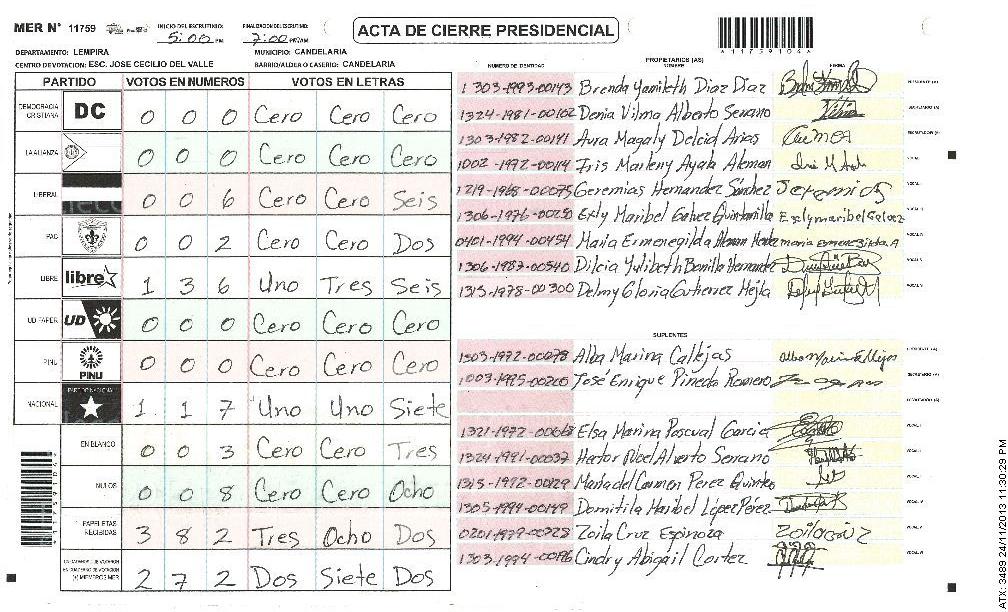 MER Nº 11759
INICIO DEL ESCRUTINIO: 5:00 PM
FINALIZACION DEL ESCRUTINIO: 7:00 PM/AM
ACTA DE CIERRE PRESIDENCIAL
A11759104A
DEPARTAMENTO: LEMPIRA
MUNICIPIO: CANDELARIA
CENTRO DE VOTACION: ESC. JOSE CECILIO DEL VALLE
BARRIO/ALDEA O CASERIO: CANDELARIA
PARTIDO VOTOS EN NUMEROS VOTOS EN LETRAS
DEMOCRACIA CRISTIANA DC 0 0 0 Cero Cero Cero
LA ALIANZA 0 0 0 Cero Cero Cero
LIBERAL 0 0 6 Cero Cero Seis
PAC 0 0 2 Cero Cero Dos
LIBRE libre 1 3 6 Uno Tres Seis
UD FAPER UD 0 0 0 Cero Cero Cero
PINU PINU 0 0 0 Cero Cero Cero
NACIONAL PARTIDO NACIONAL 1 1 7 Uno Uno Siete
EN BLANCO 0 0 3 Cero Cero Tres
NULOS 0 0 8 Cero Cero Ocho
PAPELETAS RECIBIDAS 3 8 2 Tres Ocho Dos
(+) MIEMBROS MER 2 7 2 Dos Siete Dos
NUMERO DE IDENTIDAD
PROPIETARIOS (AS)
NOMBRE FIRMA
1303-1993-00143 Brenda Yamileth Diaz Diaz
1324-1981-00102 Denia Vilma Alberto Serrano Vilma
1303-1982-00141 Aura Magaly Delcid Arias
1002-1972-00114 Iris Marleny Ayala Aleman
1219-1968-00075 Geremias Hernandez Sánchez
1306-1976-00250 Exly Maribel Galvez Quintanilla Exelymaribel Galvez
0401-1994-00454 Maria Ermenegilda
1306-1987-00540 Dilcia Yulibeth Bonilla Hernandez
1313-1978-00300 Delmy Gloria Gutierrez Mejia
SUPLENTES
1303-1972-00078 Alba Marina Callejas
1003-1995-00200 José Enrique Pineda Romero
1321-1972-00068 Elsa Marina Pascual Garcia
1324-1991-00037 Hector Noel Alverto Serrano
1313-1972-00129 Maria del Carmen Perez Quintero
1305-1994-00149 Domitila Maribel López Pérez
0201-1979-00328 Zoila Cruz Espinoza
1303-1994-00196 Cindry Abigail Cortez
ATX: 3489 24/11/2013 11:30:29 PM